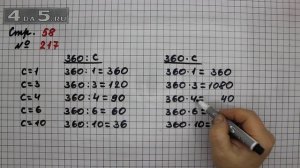 4da5.ru
Стр. 58
№ 217
360:c
360·c
c=1 360:1=360 360·1=360
c=3 360:3=120 360·3=1080
c=4 360:4=90 360·4= 40
c=6 360:6=60 360·6=
c=10 360:10=36 360·10=